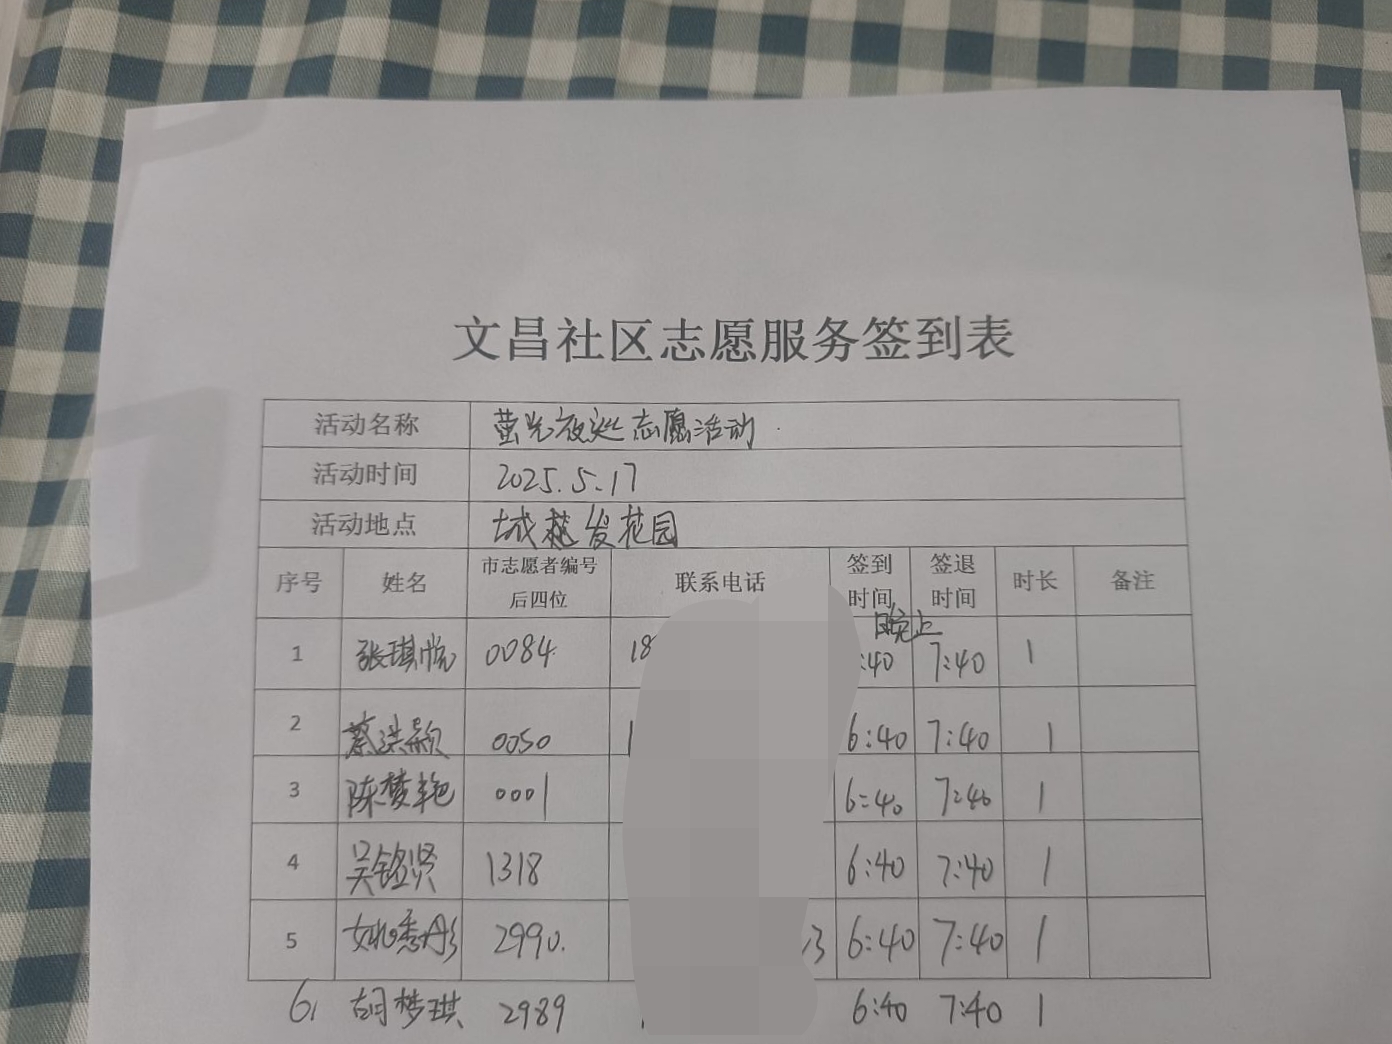 文昌社区志愿服务签到表
活动名称 萤光夜巡志愿活动
活动时间 2025.5.17
活动地点 城越发花园
序号 姓名 市志愿者编号后四位 联系电话 签到时间 签退时间 时长 备注
晚上
1 张琪悦 0084 18 :40 7:40 1
2 蔡洪颖 0050 1 6:40 7:40 1
3 陈梦艳 0001 6:40 7:40 1
4 吴铭贤 1318 6:40 7:40 1
5 姚秀彤 2990. 3 6:40 7:40 1
6, 胡梦琪 2989 6:40 7:40 1